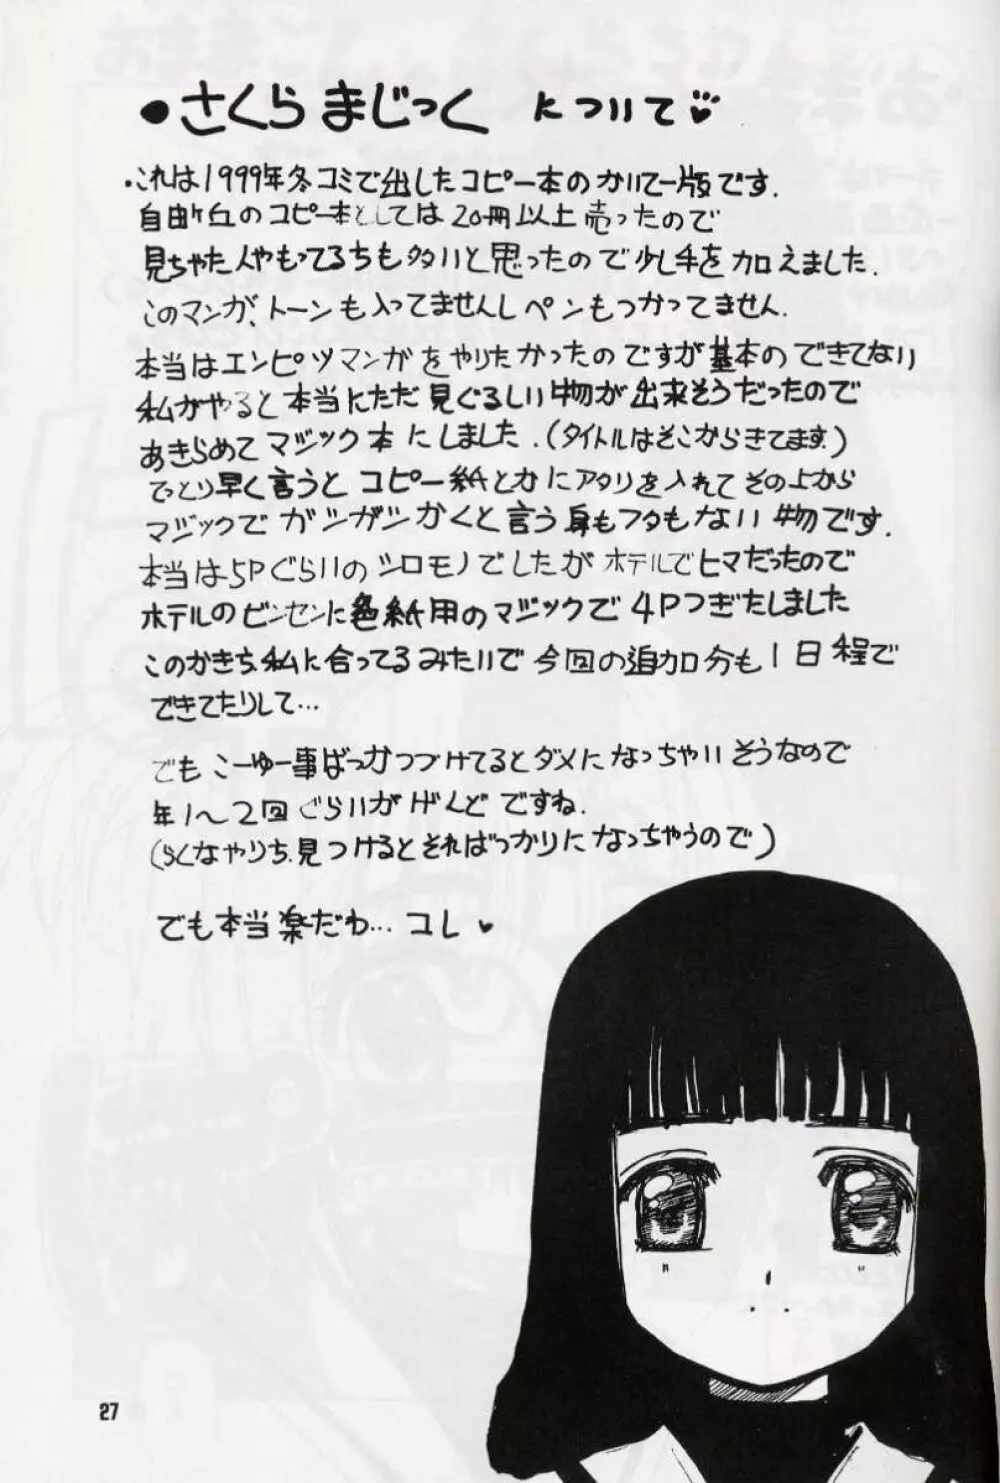 •さくらまじっくについて
・これは1999年冬コミで出したコピー本のかいてー版です.
自由ケ丘のコピー本としては20冊以上売ったので
見ちゃた人やもってるちも多いと思ったので少し手を加えました.
このマンガ、トーンも入ってませんしペンもつかってません.
本当はエンピツマンガをやりたかったのですが基本のできてない
私がやると本当にただ見ぐるしい物が出来そうだったので
あきらめてマジック本にしました.(タイトルはそこからきてます.)
てっとり早く言うとコピー紙とかにアタリを入れてその上から
マジックでガシガシかくと言う身もフタもない物です.
本当は5Pぐらいのシロモノでしたがホテルでヒマだったので
ホテルのビンセンに色紙用のマジックで4Pつぎたしました
このかきち私に合ってるみたいで今回の追加分も1日程で
できてたりして…
でもこーゆー事ばっかつづけてるとダメになっちゃいそうなので
年1〜2回ぐらいがげんどですね.
(らくなやりち見つけるとそればっかりになっちゃうので)
でも本当楽だわ…コレ♥
27